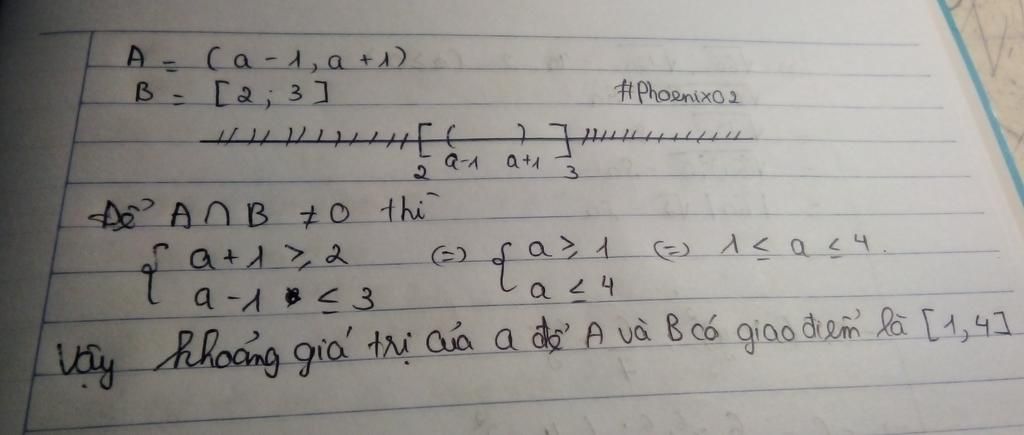 A = (a - 1, a + 1)
B = [2 ; 3]
#Phoenix02
[ ( ) ]
2 a-1 a+1 3
Để A ∩ B ≠ 0 thì
{ a + 1 ≥ 2 (=) { a ≥ 1 (=) 1 ≤ a ≤ 4.
a - 1 ≤ 3 a ≤ 4
Vậy khoảng giá trị của a để A và B có giao điểm là [1,4]